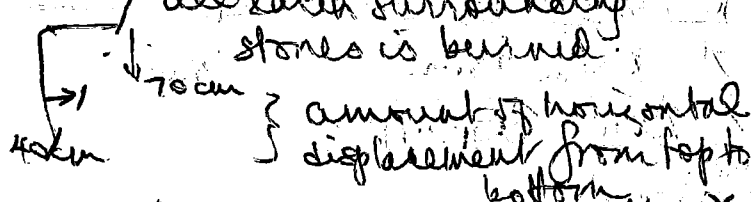 all earth surrounding
stones is burned.
70cm
} amount of horizontal
40cm } displacement from top to
bottom